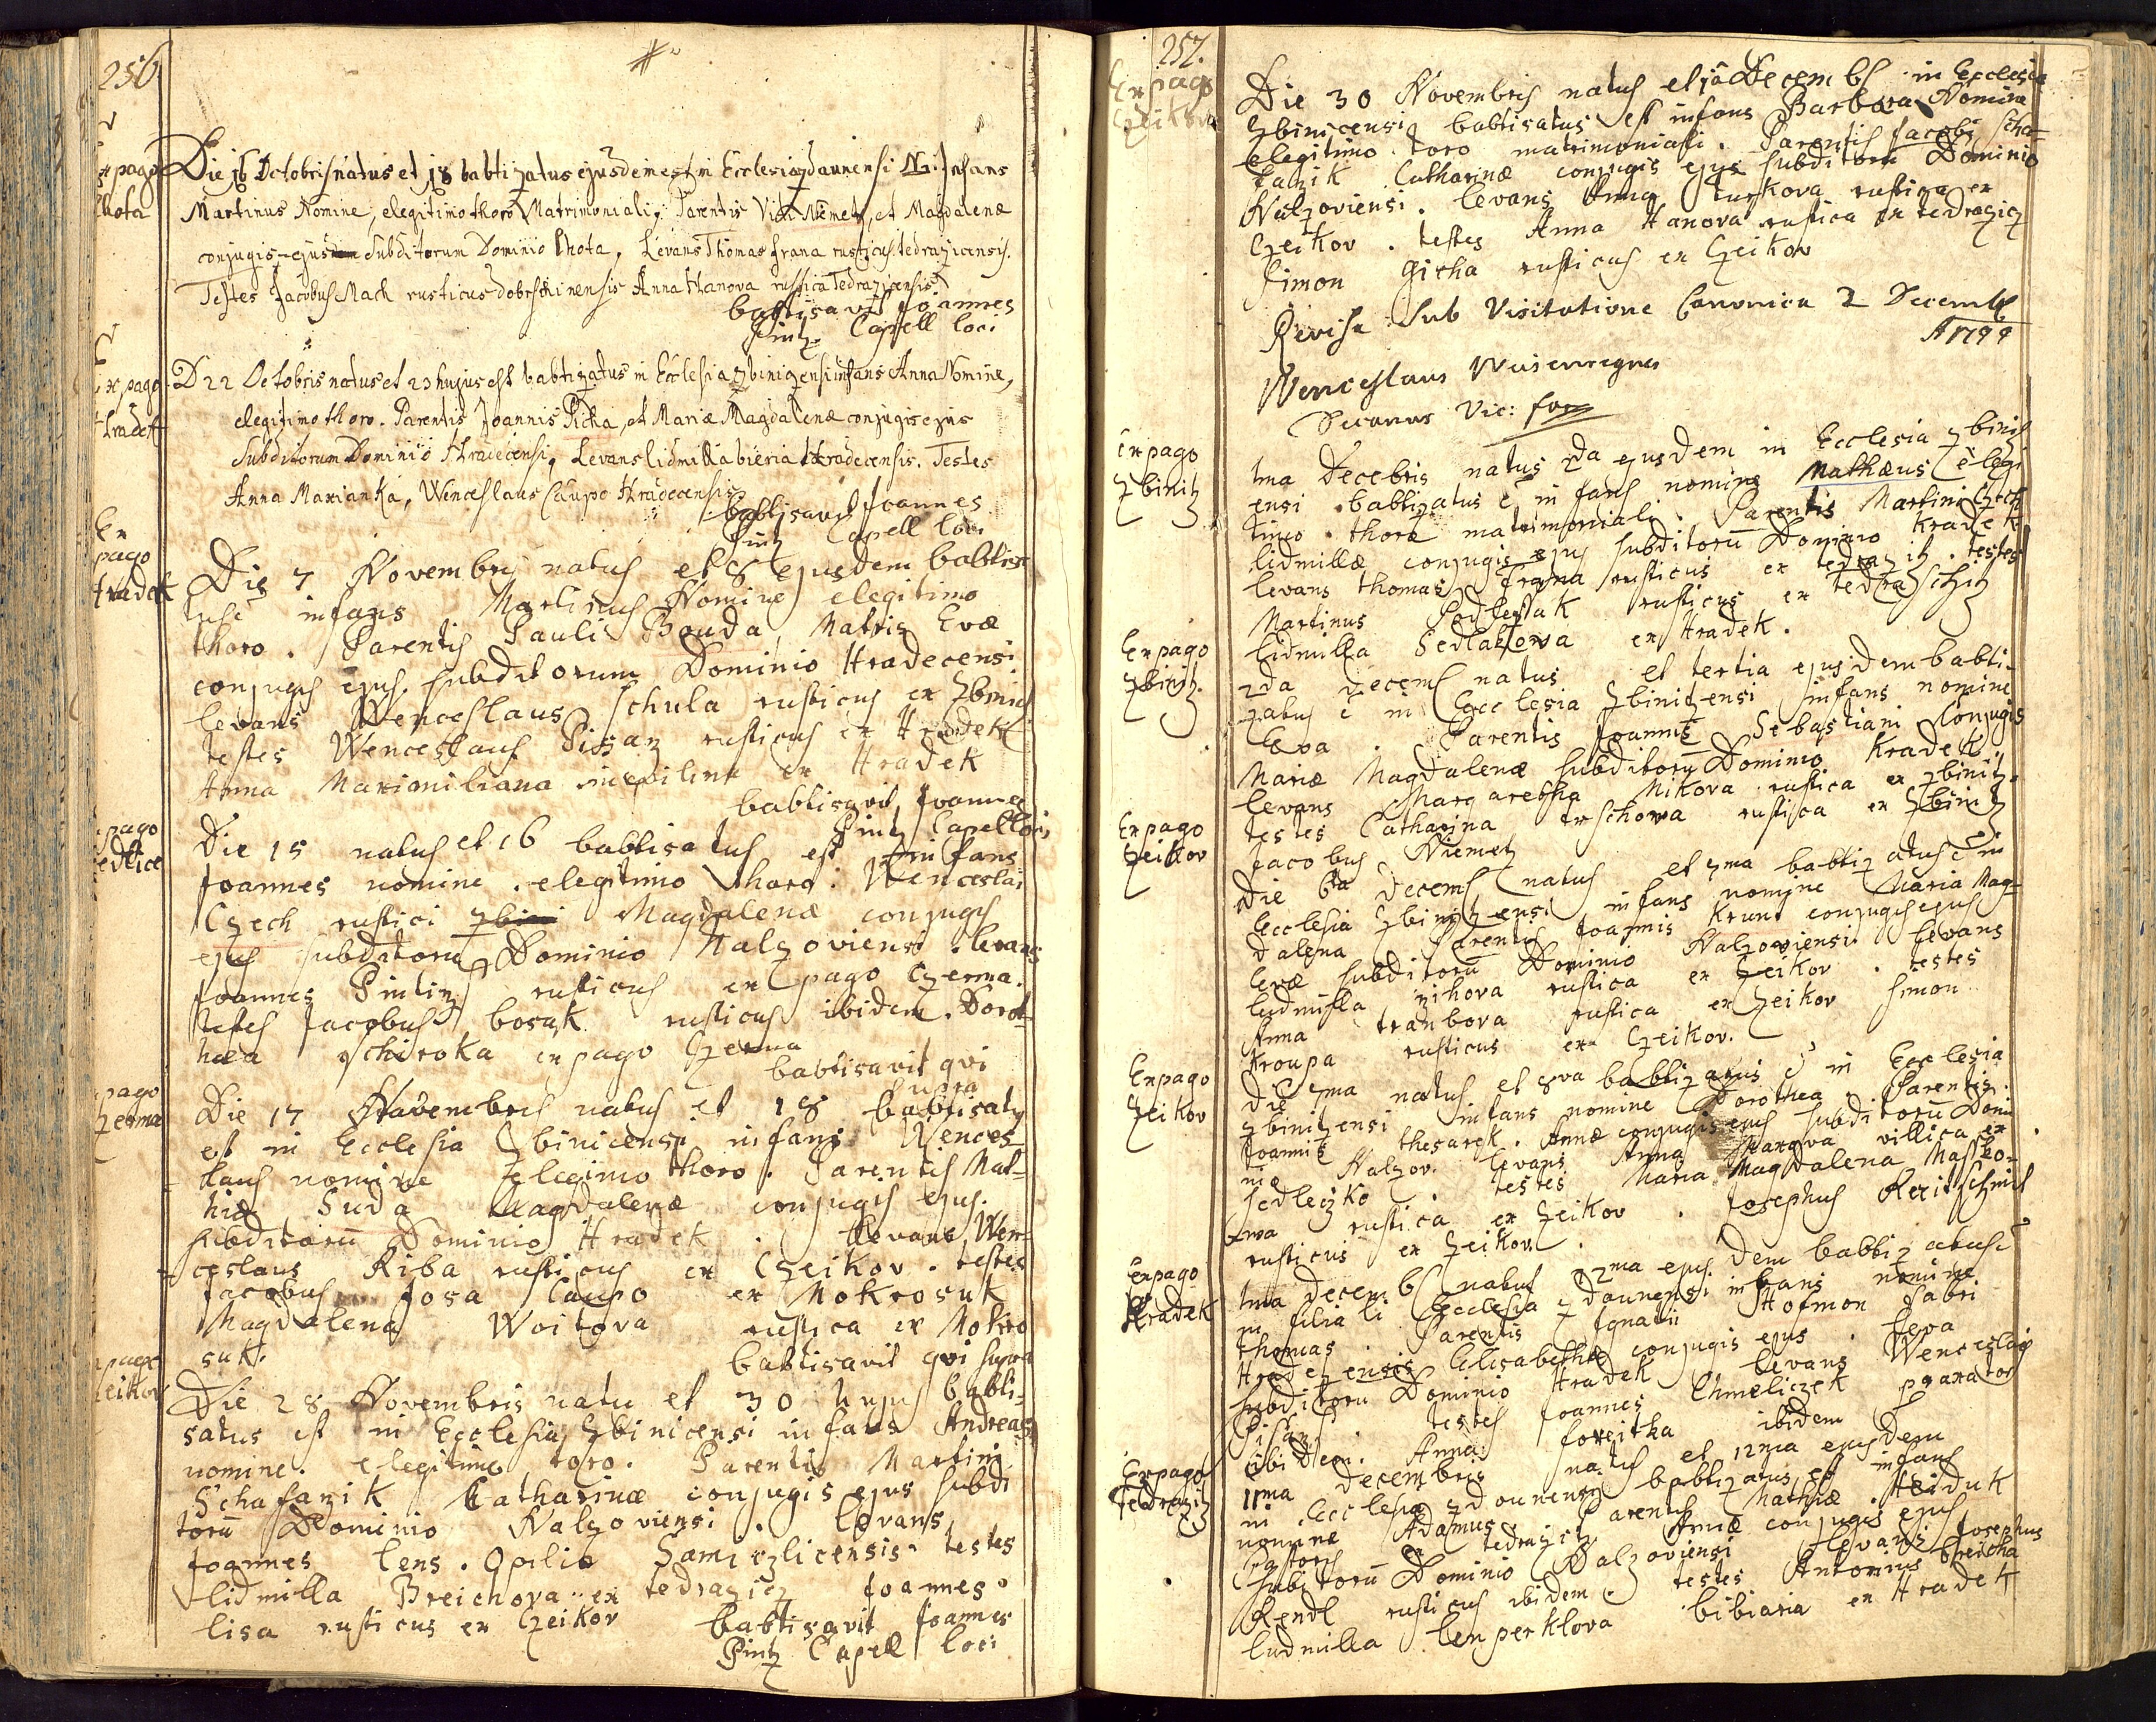 256
Ex pago
Lhota
Die 16 Octobris natus et 18 babtizatus ejusdem est in Ecclesia Zdaunensi Infans
Martinus Nomine, elegitimo thoro Matrimoniali, Parentis Viti Nemetz, et Magdalenæ
conjugis ejus Subditorum Dominio Lhota, Levans Thomas frana rusticus tedrazicensis.
Testes Jacobus Mach rusticus dobrschinensis Anna Hanova rustica Tedrazicensis
babtisavit Joannes
Pintz Capell loci
Ex pago
Hradek
D 22 Octobris natus et 23 hujus est babtizatus in Ecclesia Zbinizensi infans Anna Nomine,
elegitimo thoro. Parentis Joannis Picka, et Mariæ Magdalenæ conjugis ejus
Subditorum Dominio Hradecensi, Levans lidmilla bieria Hradecensis. Testes
Anna Marianka, Wenceslaus Caupo Hradecensis
babtisavit Joannes
Pintz Capell loci
Ex
pago
Hradek
Die 7 Novembris natus et 8 ejusdem babtisa
infans Martinus Nomine elegitimo
thoro. Parentis Pauli Bouda, Matris Evæ
conjugis ejus subditorum Dominio Hradecensi
levans Wenceslaus Schula rusticus ex Zbinitz
testes Wenceslaus Pissarz rusticus ex Hradek
Anna Maximiliana ex Hradek
babtisavit Joannes
Pintz Capell loci
pago
edlice
Die 15 natus et 16 babtisatus est infans
Joannes nomine. elegitimo thoro. Wenceslai
Czech rustici Magdalenæ conjugis
ejus subditorū Dominio Nalzoviensi. levans
Joannes Pintz rusticus ex pago Czerma.
testes Jacobus bosak rusticus ibidem. Dorot-
hæa schiroka ex pago Czerma
babtisavit qvi
supra
pago
zerma
Die 17 Novembris natus et 18 babtisaty
est in Ecclesia Zbinicensi infans Wences-
laus nomine elegimo thoro. Parentis Mat-
hiæ Suda Magdalenæ conjugis ejus.
subditorū Dominio Hradek. Levans Wen-
ceslaus Riba rusticus ex Czeikov. testes
Jacobus Josa Caupo ex Mokrosuk
Magdalena Woitova rustica ex Mokro
suk.
babtisavit qvi supra
pago
Zeikov
Die 28 Novembris natu et 30 hujus babti-
satus est in Ecclesia Zbinicensi infans Andreas
nomine. elegitimo toro. Parentis Martini
Schafanik Catharinæ conjugis ejus subdi
torū Dominio Nalzoviensi. Levans
Joannes lens. Opilio testes
lidmilla Breichova ex tedrazicz Joannes
lisa rusticus ex Czeikov babtisavit Joannes
Pintz Capell loci
257.
Ex pago
Czeikov
Die 30 Novembris natus et Decembs in Ecclesia
Zbinicensi babtisatus est infans Barbara Nomine
elegitimo toro matrimoniali. Parentis Jacobi scha-
fazik Catharinæ conjugis ejus subditorū Dominio
Nalzoviensi. levans Anna turkova rustica ex
Czeikov. testes Anna Hanova rustica ex tedrazicz
Simon Gicha rusticus ex Czeikov
Revisa sub Visitatione Canonica 2 Decembr
A 1799
Wenceslaus
Decanus Vic: for
Ex pago
Zbinitz
1ma Decebris natus 2da ejusdem in Ecclesia Zbinitz
ensi babtizatus ē infans nomine Mathæus ē legi
timo thoro matrimoniali. Parentis Martini Czech
lidmillæ conjugis ejus subditorū Dominio Hradek
levans thomas frana rusticus ex tedrazitz. testes
Martinus Podlessak rusticus ex tedraschitz
lidmilla Sedlakova ex Hradek.
Ex pago
Zbinitz.
2da Decemb natus et tertia ejusdem babti-
zatus ē in Ecclesia Zbinitzensi infans nomine
Eva. Parentis Joannis Sebastiani Conjugis
Mariæ Magdalenæ subditorū Dominio Hradek
levans Margaretha Mikova rustica ex Zbinitz.
testes Catharina trschowa rustica ex Zbinitz
Jacobus Niemetz
Ex pago
Zeikov
Die 6ta Decemb natus et 7ma babtizatus ē in
Ecclesia Zbinitzensi infans nomine Maria Mag-
dalena Parentis Joannis Krunt conjugis ejus
Evæ subditorū Dominio Nalzoviensi levans
ludmilla zihova rustica ex Zeikov. testes
Anna tranbova rustica ex Zeikov simon
Kroupa rusticus ex Czeikov.
Ex pago
Zeikov
Die 7ma natus et 8va babtizatus ē in Ecclesia
Zbinitzensi infans nomine Dorothea. Parentis
Joannis thesarek. Annæ conjugis ejus subditorū Domi
nio Nalzov. levans Anna villica ex
sedleczko. testes Maria Magdalena
ova rustica ex Zeikov. Josephus
rusticus ex Zeikov.
Ex pago
Hradek
1ma Decemb natus 2ma ejusdem babtizatus ē
in filiali Ecclesia Zdaunensi infans nomine
thomas. Parentis Ignatii Hofmon fabri
Hradezensis Elisabethæ conjugis ejus.
subditorū Dominio Hradek levans Wenceslaus
Pisarz. testes Joannes Chmeliczek
ibidem. Anna foreitka ibidem
Ex pago
Tedrazitz
11ma Decembris natus et 12ma ejusdem
in Ecclesia Zdounensi babtizatus est infans
nomine Adamus. Parentis Mathiæ Haiduk
pastoris ex tedrazitz Annæ conjugis ejus
subditorū Dominio Nalzoviensi levans Josephus
Rendl rusticus ibidem. testes Antonius breicha
ludmilla lenperklova bibiaria ex Hradek